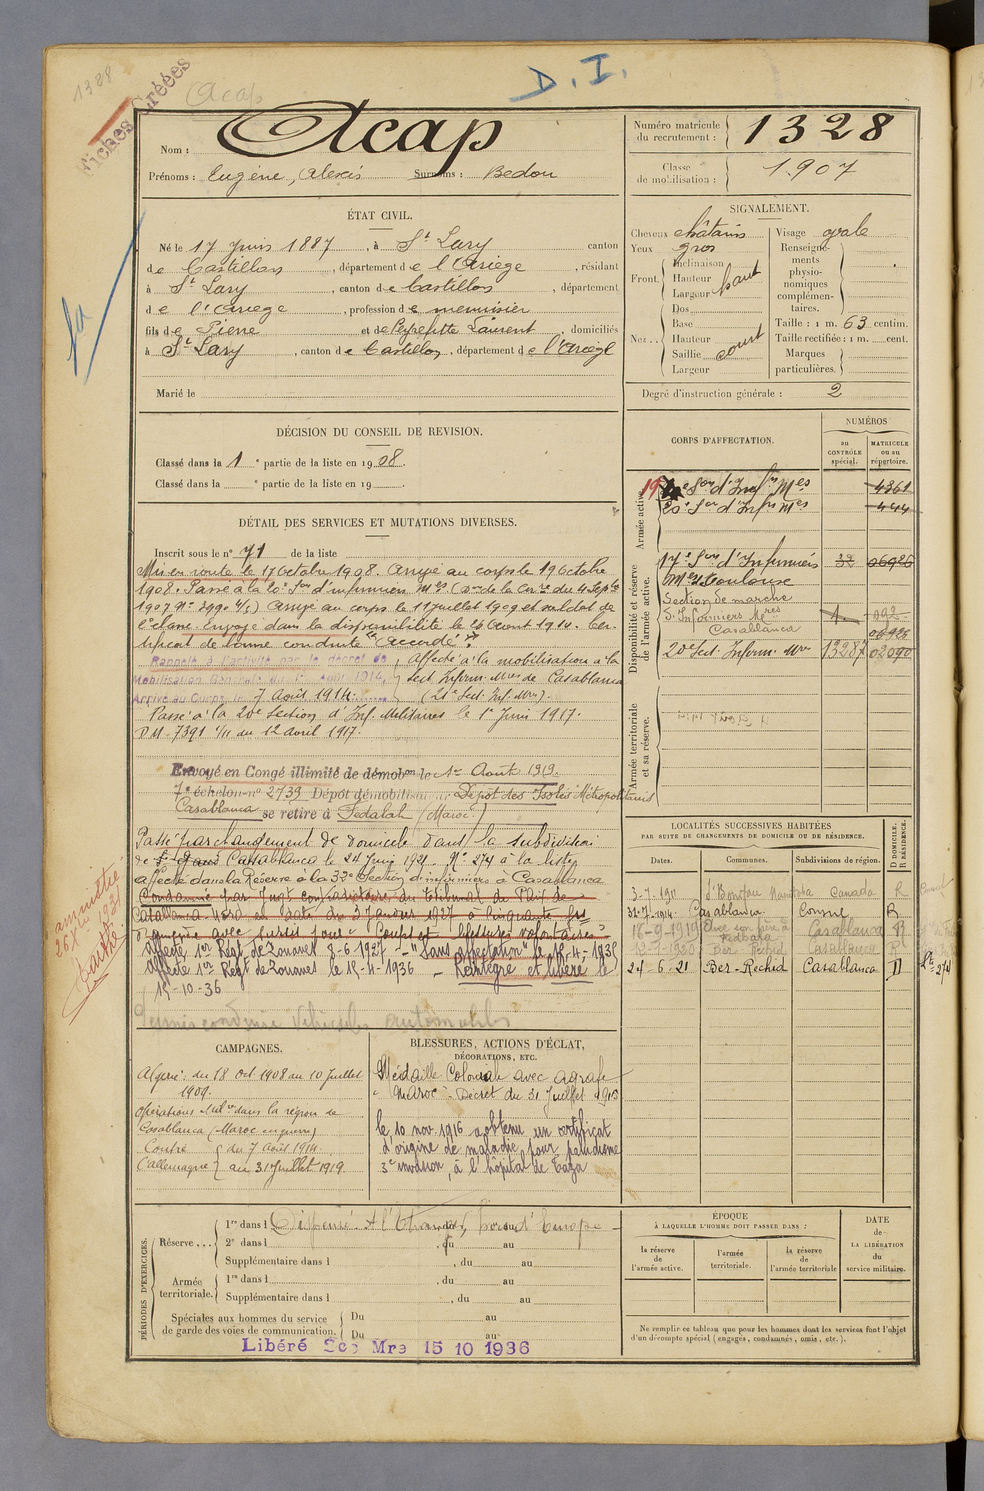 1328
Fiches Créées
Acap
D. I.
Nom : Acap
Prénoms : Eugène, Alexis Surnoms : Bedou
Numéro matricule du recrutement : 1328
Classe de mobilisation : 1907
ÉTAT CIVIL.
Né le 17 Juin 1887, à St Lary canton
de Castillon, département de l'Ariège, résidant
à St Lary, canton de Castillon, département
de l'Ariège, profession de menuisier
fils de Pierre et de Peyrefitte Laurent, domiciliés
à St Lary, canton de Castillon, département de l'Ariège
Marié le
SIGNALEMENT.
Cheveux châtains
Yeux gros
Front. Inclinaison
Hauteur haut
Largeur
Nez.. Dos
Base
Hauteur court
Saillie
Largeur
Visage ovale
Renseignements physionomiques complémentaires.
Taille : 1 m. 63 centim.
Taille rectifiée : 1 m. cent.
Marques particulières.
Degré d'instruction générale : 2
DÉCISION DU CONSEIL DE REVISION.
Classé dans la 1e partie de la liste en 1908.
Classé dans la e partie de la liste en 19
DÉTAIL DES SERVICES ET MUTATIONS DIVERSES.
Inscrit sous le n° 71 de la liste
Mis en route le 17 Octobre 1908. Arrivé au corps le 19 Octobre
1908. Passé à la 20e Son d'infirmiers Mres (Don de la Cre du 4 Septbre
1907 N° 3990 4/7) arrivé au corps le 11 juillet 1909 et soldat de
1e classe. Envoyé dans la disponibilité le 24 Aout 1910. Cer-
tificat de bonne conduite "Accordé".
Rappelé à l'activité par le décret de
Mobilisation Générale du 1er Août 1914,
Arrivé au Corps le 7 Août 1914.
Affecté à la mobilisation à la
Sect. Infirm. Mres de Casablanca
(21e Sect. Inf. Mres)
Passé à la 20e Section d'Inf. Militaires le 1er Juin 1917.
DM. 7391 1/11 du 12 avril 1917.
Envoyé en Congé illimité de démobon le 1er Août 1919.
7e échelon-n° 2739 Dépôt démobilisateur Dépôt des Isolés Métropolitains
Casablanca se retire à Fedalah (Maroc)
Passé par changement de domicile dans la subdivision
de Casablanca le 24 Juin 1921. N° 274 à la liste
affecté dans la Réserve à la 33e Section d'infirmiers à Casablanca
Condamné par Jugt contradictoire du tribunal de Paix de
Casablanca-Nord en date du 27 Janvier 1927 à cinquante frs
d'amende avec sursis pour "Coups et blessures volontaires"
Affecté 1er Régt de Zouaves 8-6-1927 - "Sans affectation" le 15-4-1935
Affecté 1er Régt de Zouaves le 15-4-1936 - Réintégré et libéré le
15-10-36
Permis conduire véhicules automobiles
amnistié
26 Xbre 1931
CORPS D'AFFECTATION.
NUMÉROS
au CONTRÔLE spécial.
MATRICULE ou au répertoire.
Armée active.
19e Son d'Infrs Mres 4361
20e Son d'Infrs Mres 444
Disponibilité et réserve de l'armée active.
17e Son d'Infirmiers 32 06926
Mres Toulouse
Section de marche
d'Infirmiers Mres 1 092
Casablanca 06926
20e Sect. Infirm. Mres 13287 02090
Armée territoriale et sa réserve.
LOCALITÉS SUCCESSIVES HABITÉES
PAR SUITE DE CHANGEMENTS DE DOMICILE OU DE RÉSIDENCE.
Dates. Communes. Subdivisions de région. D DOMICILE. R RÉSIDENCE.
3-7-1911 St Boniface Manitoba Canada R
31-7-1914 Casablanca Comme R
16-9-1919 Chez son frère à Fedhala Casablanca R
12-1920 Ber Rechid Casablanca R
24-6-21 Ber-Rechid Casablanca D
274
CAMPAGNES.
Algérie : du 18 Oct 1908 au 10 Juillet
1909.
Opérations Milres dans la région de
Casablanca (Maroc en guerre)
Contre l'Allemagne du 7 Août 1914
au 31 Juillet 1919
BLESSURES, ACTIONS D'ÉCLAT,
DÉCORATIONS, ETC.
Médaille Coloniale avec agrafe
"Maroc" - Décret du 31 Juillet 1913
le 10 nov. 1916 a obtenu un certificat
d'origine de maladie pour paludisme
3e invasion, à l'hôpital de Taza
PÉRIODES D'EXERCICES.
Réserve... 1re dans l Dispensé. A l'Étranger, hors d'Europe
2e dans l , du au
Supplémentaire dans l , du au
Armée territoriale. 1re dans l , du au
Supplémentaire dans l , du au
Spéciales aux hommes du service de garde des voies de communication. Du au
Du au
Libéré Sce Mre 15 10 1936
ÉPOQUE
À LAQUELLE L'HOMME DOIT PASSER DANS :
la réserve de l'armée active.
l'armée territoriale.
la réserve de l'armée territoriale
DATE de LA LIBÉRATION du service militaire.
Ne remplir ce tableau que pour les hommes dont les services font l'objet
d'un décompte spécial (engagés, condamnés, omis, etc.).